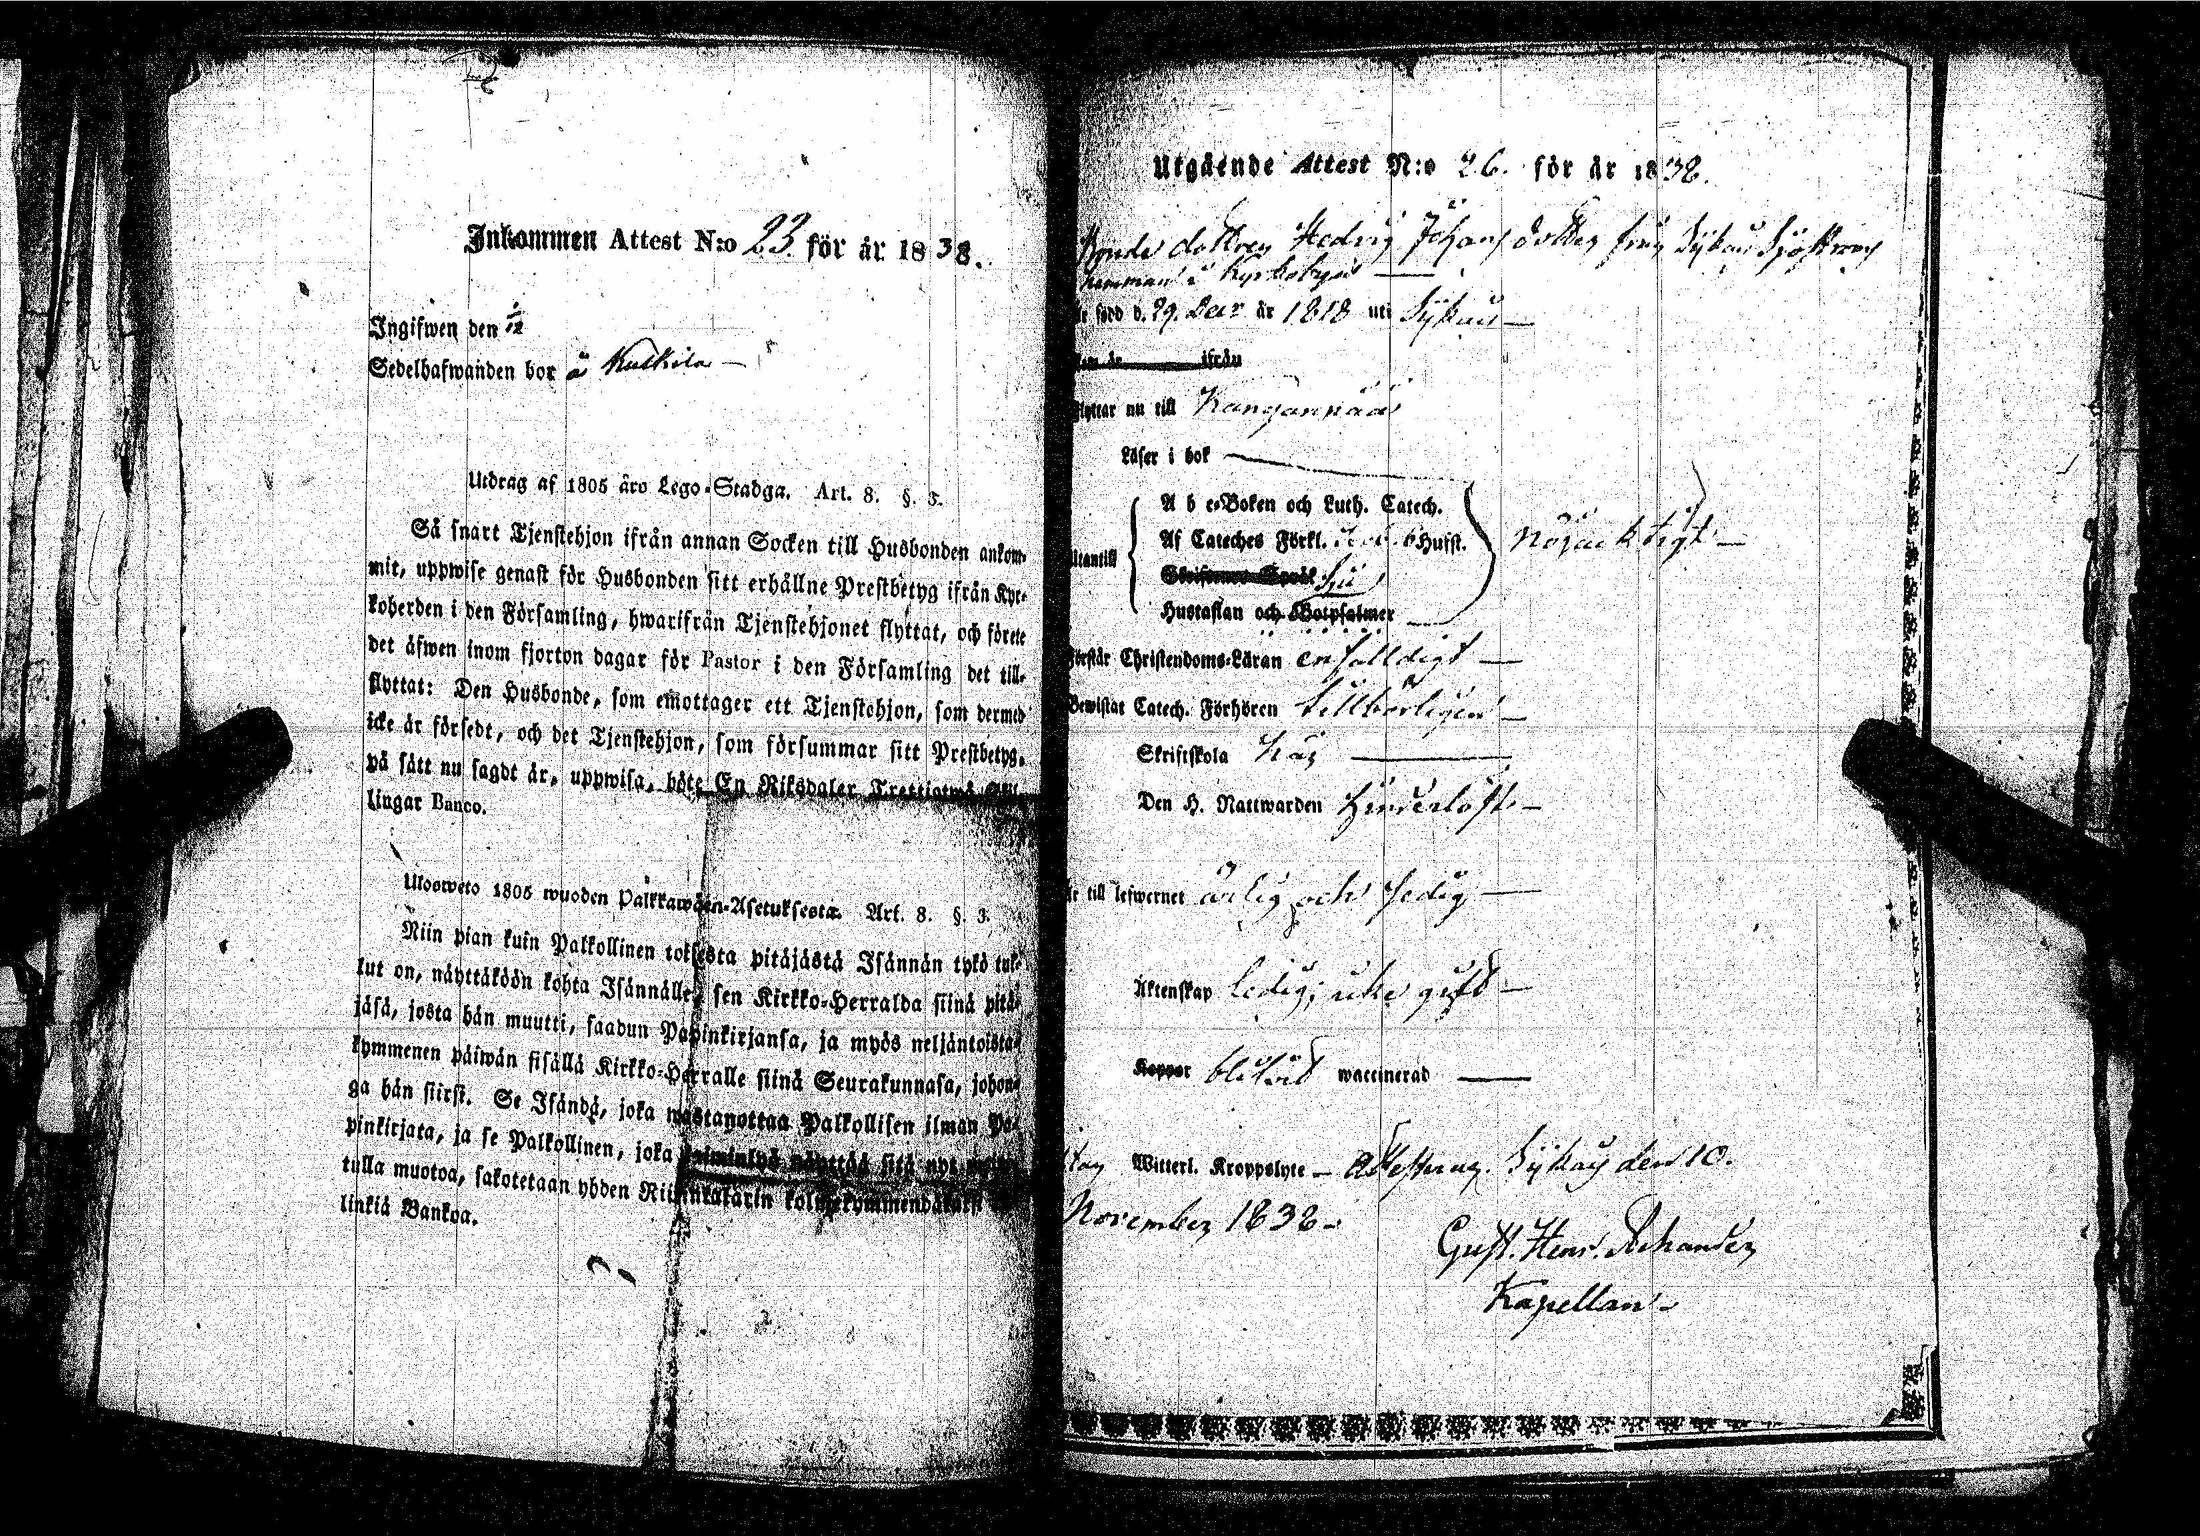 Inkommen Attest N:o 23. för år 1838.
Ingifwen den 1/12
Sedelhafwanden bor å Kulkila
Utdrag af 1805 års Lego-Stadga. Art. 8. §. 3.
Så snart Tjenstehjon ifrån annan Socken till Husbonden ankom-
mit, uppwise genast för Husbonden sitt erhållne Prestbetyg ifrån Kyr-
koherden i den Församling, hwarifrån Tjenstehjonet flyttat, och förete
det äfwen inom fjorton dagar för Pastor i den Församling det till-
flyttat: Den Husbonde, som emottager ett Tjenstehjon, som dermed
icke är försedt, och det Tjenstehjon, som försummar sitt Prestbetyg,
på sätt nu sagdt är, uppwisa, böte En Riksdaler Trettiotwå Skil-
lingar Banco.
Ulosweto 1805 wuoden Palkkawäen-Asetuksesta. Art. 8. §. 3.
Niin pian kuin Palkollinen toisesta pitäjästä Isännän tykö tul-
lut on, näyttäköön kohta Isännälle, sen Kirkko-Herralda siinä pitä-
jäsä, josta hän muutti, saadun Papinkirjansa, ja myös neljäntoista-
kymmenen päiwän sisällä Kirkko-Herralle siinä Seurakunnasa, johon-
ga hän siirsi. Se Isändä, joka wastanottaa Palkollisen ilman Pa-
pinkirjata, ja se Palkollinen, joka laiminlyö näyttää sitä nyt
tulla muotoa, sakotetaan yhden Riikintalarin kolmekymmendäkaksi
linkiä Bankoa.
Utgående Attest N:o 26. för år 1838.
Bonde dottren Hedvig Johans dotter från
hemman i Kyrkobyn
är född d. 29. Decr år 1818 uti
ifrån
flyttar nu till Kangannää
Läser i bok
Utantill
A b c-Boken och Luth. Catech.
Af Cateches Förkl. Hufst.
Hustaflan och Botpsalmer
nöjacktigt
Förstår Christendoms-Läran enfalldigt
Bewistat Catech. Förhören tillbörligen
Skriftskola
Den H. Nattwarden
är till lefwernet ärlig och sedig
Äktenskap ledig,
Koppor blifwit waccinerad
Witterl. Kroppslyte attesteras. den 10.
November 1838.
Gust. Henr.
Kapellan